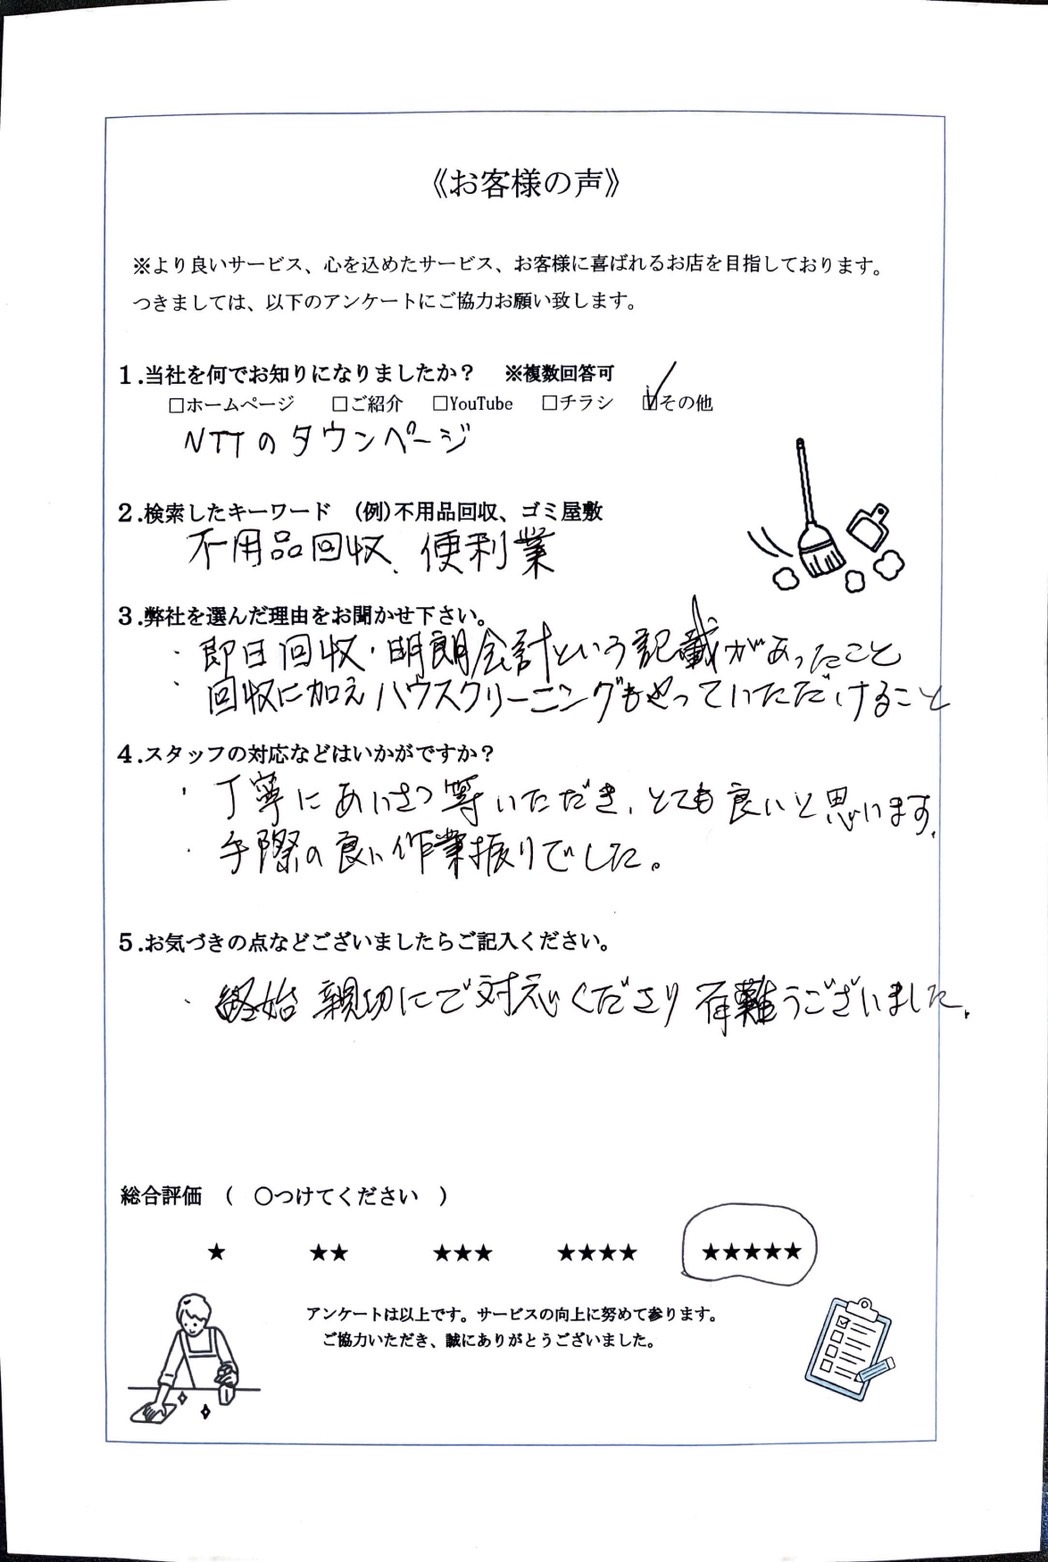 《お客様の声》
※より良いサービス、心を込めたサービス、お客様に喜ばれるお店を目指しております。
つきましては、以下のアンケートにご協力お願い致します。
1.当社を何でお知りになりましたか？　※複数回答可
□ホームページ　□ご紹介　□YouTube　□チラシ　☑その他
NTTのタウンページ
2.検索したキーワード　(例)不用品回収、ゴミ屋敷
不用品回収、便利業
3.弊社を選んだ理由をお聞かせ下さい。
・即日回収・明朗会計という記載があったこと
・回収に加えハウスクリーニングもやっていただけること
4.スタッフの対応などはいかがですか？
・丁寧にあいさつ等いただき、とても良いと思います。
・手際の良い作業振りでした。
5.お気づきの点などございましたらご記入ください。
・終始親切にご対応くださり有難うございました。
総合評価　(　○つけてください　)
★　★★　★★★　★★★★　★★★★★
アンケートは以上です。サービスの向上に努めて参ります。
ご協力いただき、誠にありがとうございました。